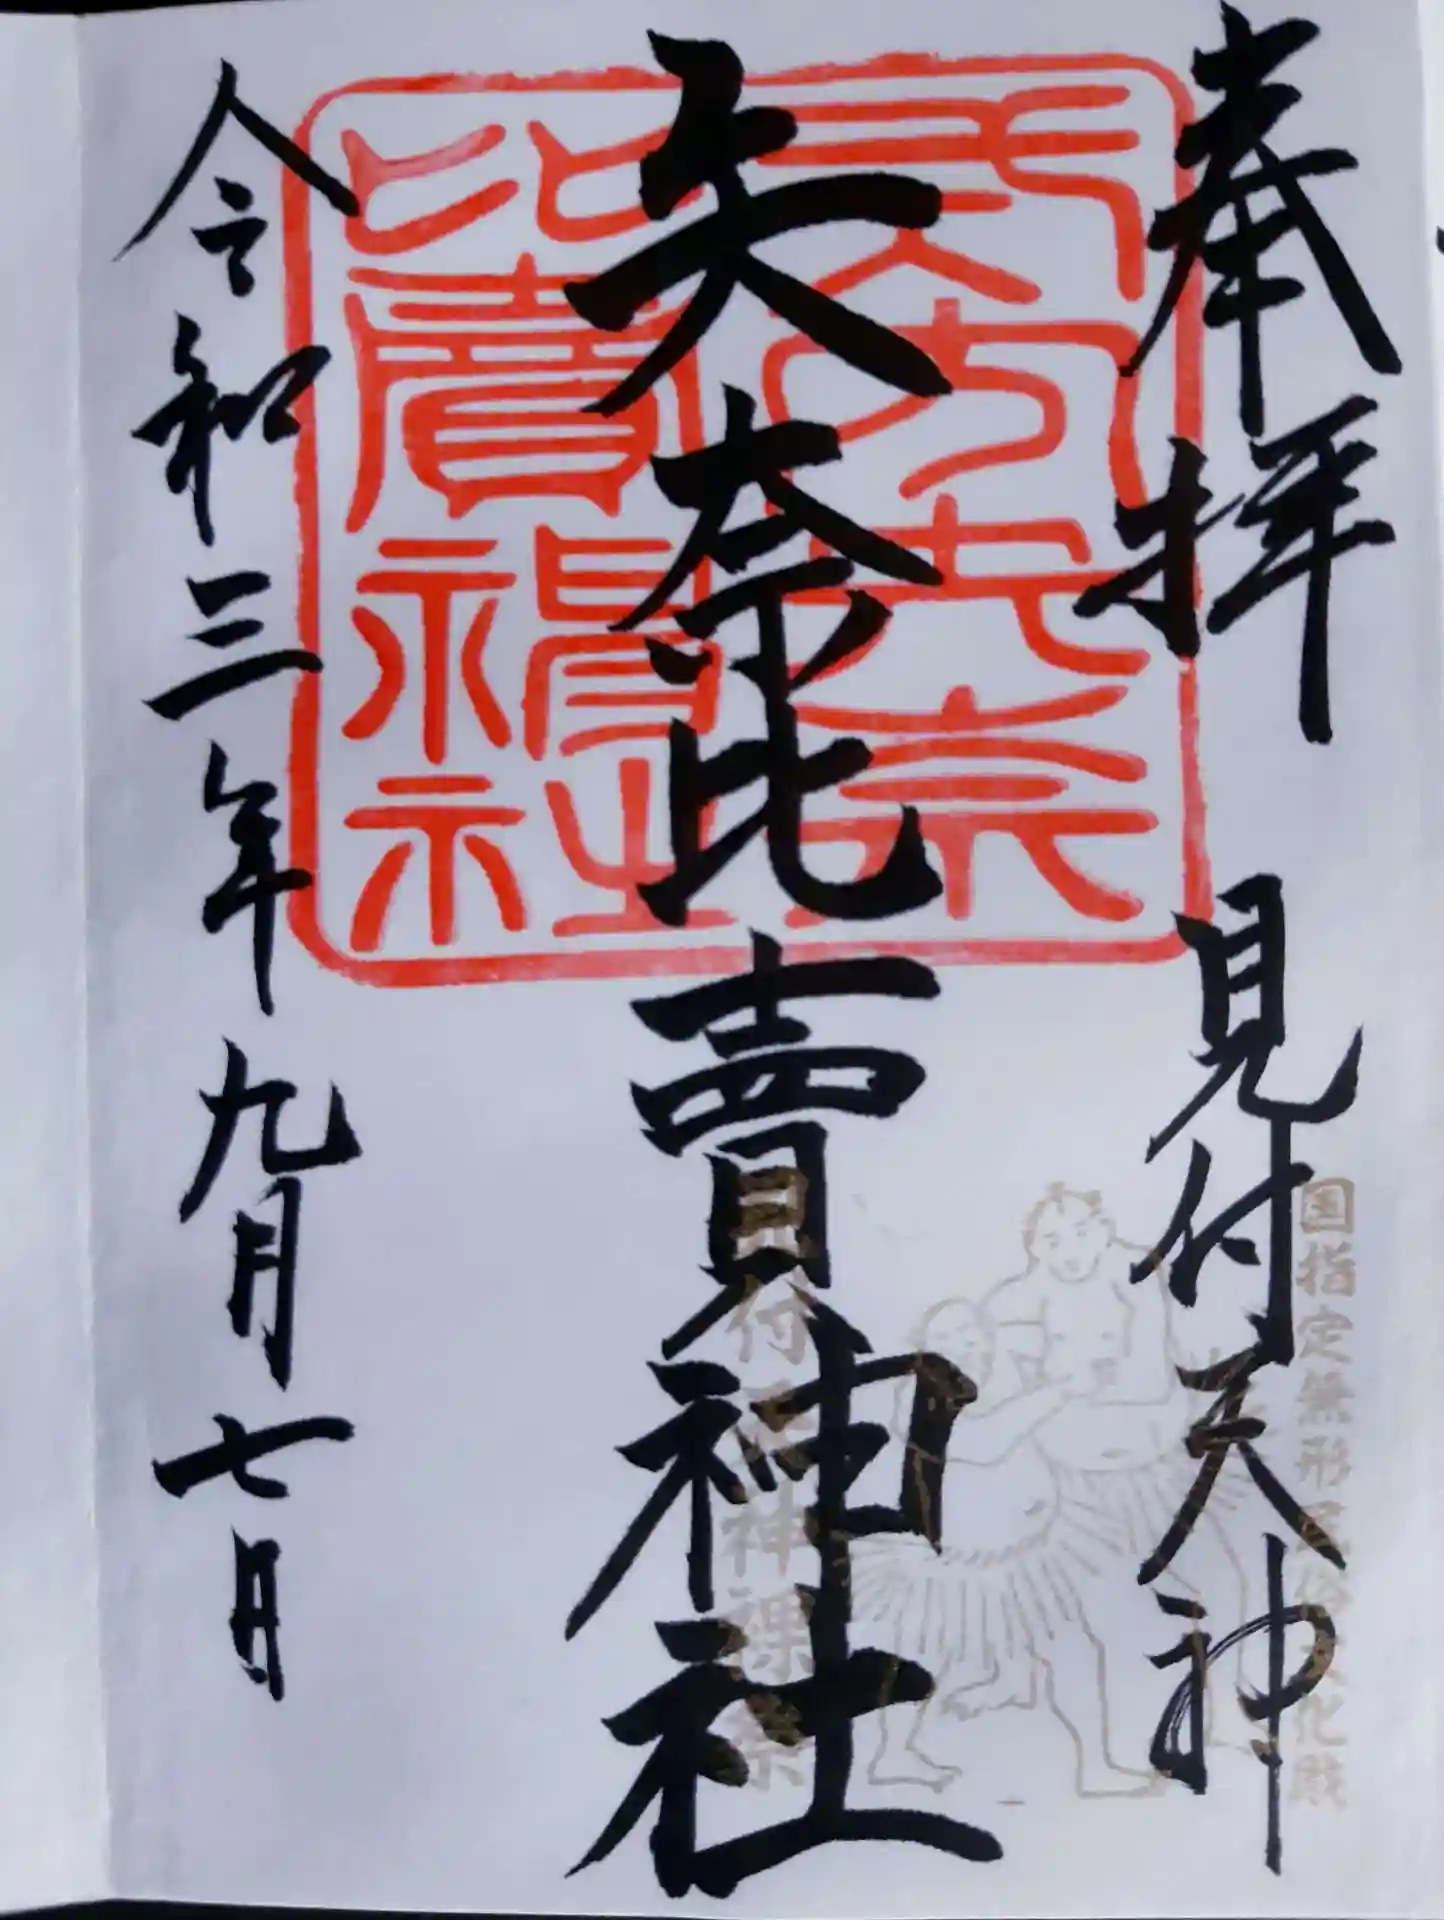 奉拝　見付天神
国指定無形民俗文化財
見付天神裸祭
矢奈比賣神社
式内矢奈
比賣神社
令和三年九月七日